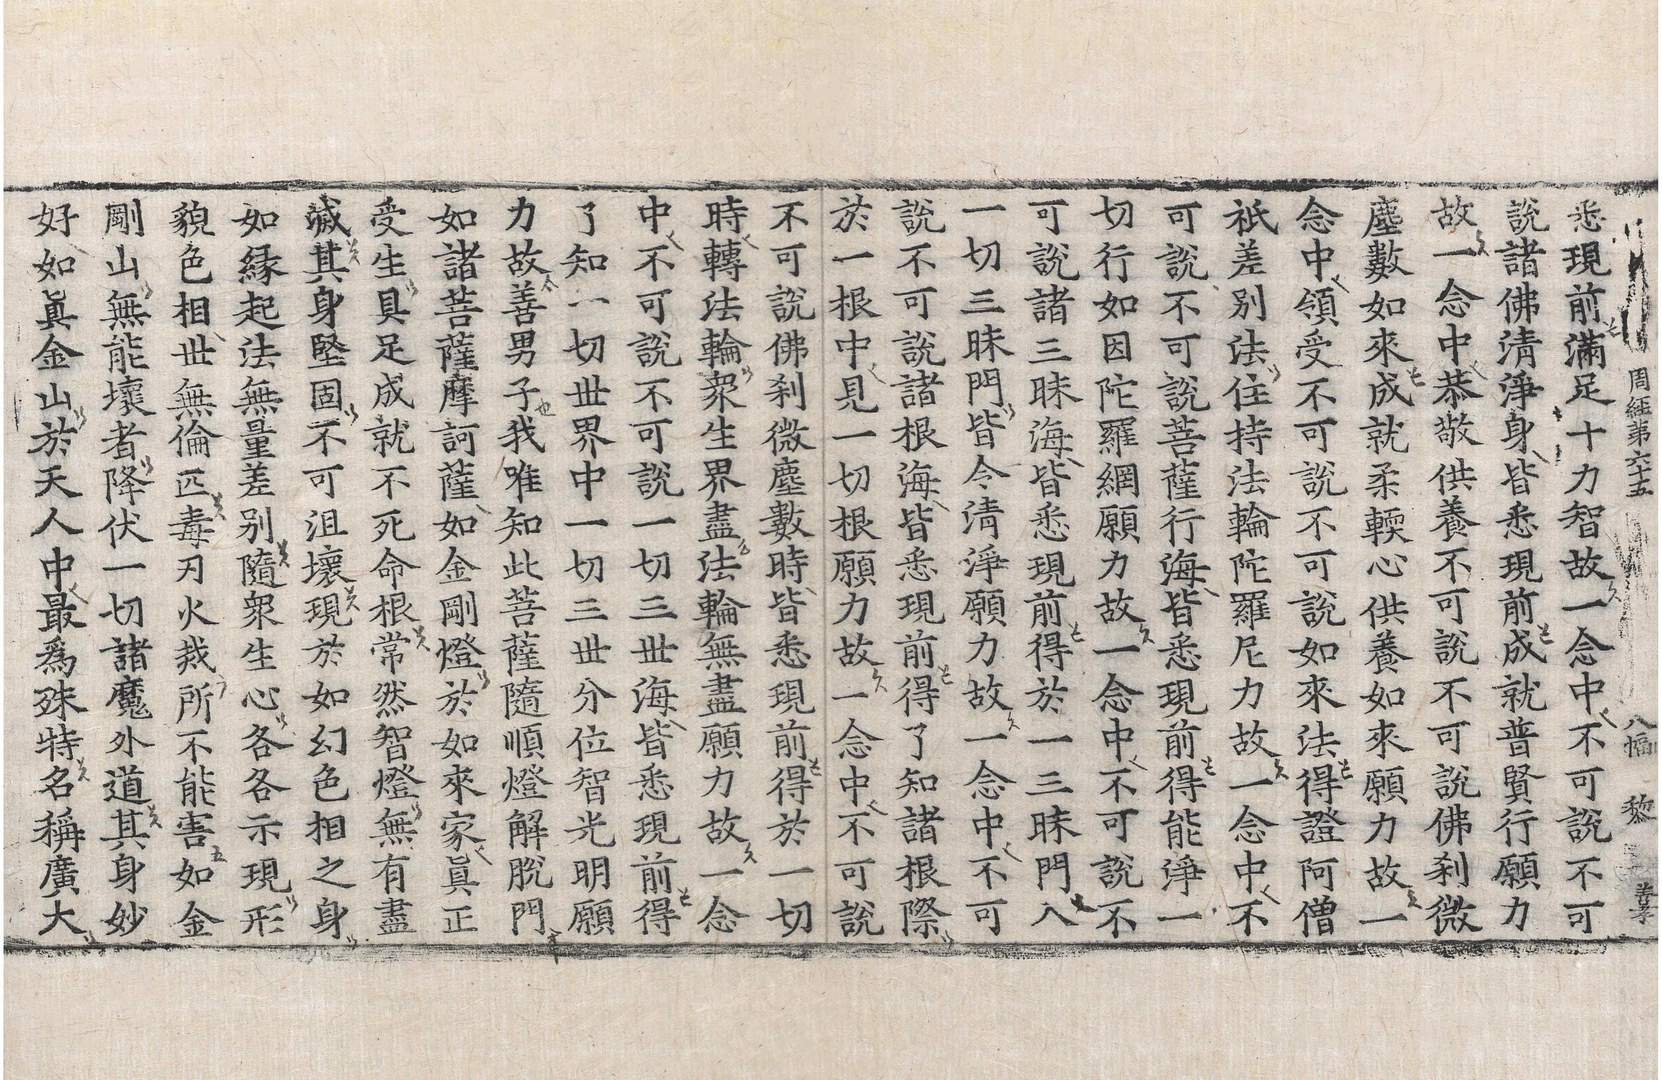 周經第六十五 八幅 黎 善孝
悉現前滿足十力智故一念中不可說不可
說諸佛清淨身皆悉現前成就普賢行願力
故一念中恭敬供養不可說不可說佛刹微
塵數如來成就柔輭心供養如來願力故一
念中領受不可說不可說如來法得證阿僧
祇差別法住持法輪陀羅尼力故一念中不
可說不可說菩薩行海皆悉現前得能淨一
切行如因陀羅網願力故一念中不可說不
可說諸三昧海皆悉現前得於一三昧門入
一切三昧門皆令清淨願力故一念中不可
說不可說諸根海皆悉現前得了知諸根際
於一根中見一切根願力故一念中不可說
不可說佛刹微塵數時皆悉現前得於一切
時轉法輪衆生界盡法輪無盡願力故一念
中不可說不可說一切三世海皆悉現前得
了知一切世界中一切三世分位智光明願
力故善男子我唯知此菩薩隨順燈解脫門
如諸菩薩摩訶薩如金剛燈於如來家眞正
受生具足成就不死命根常然智燈無有盡
滅其身堅固不可沮壞現於如幻色相之身
如緣起法無量差別隨衆生心各各示現形
貌色相世無倫匹毒刃火烖所不能害如金
剛山無能壞者降伏一切諸魔外道其身妙
好如眞金山於天人中最爲殊特名稱廣大